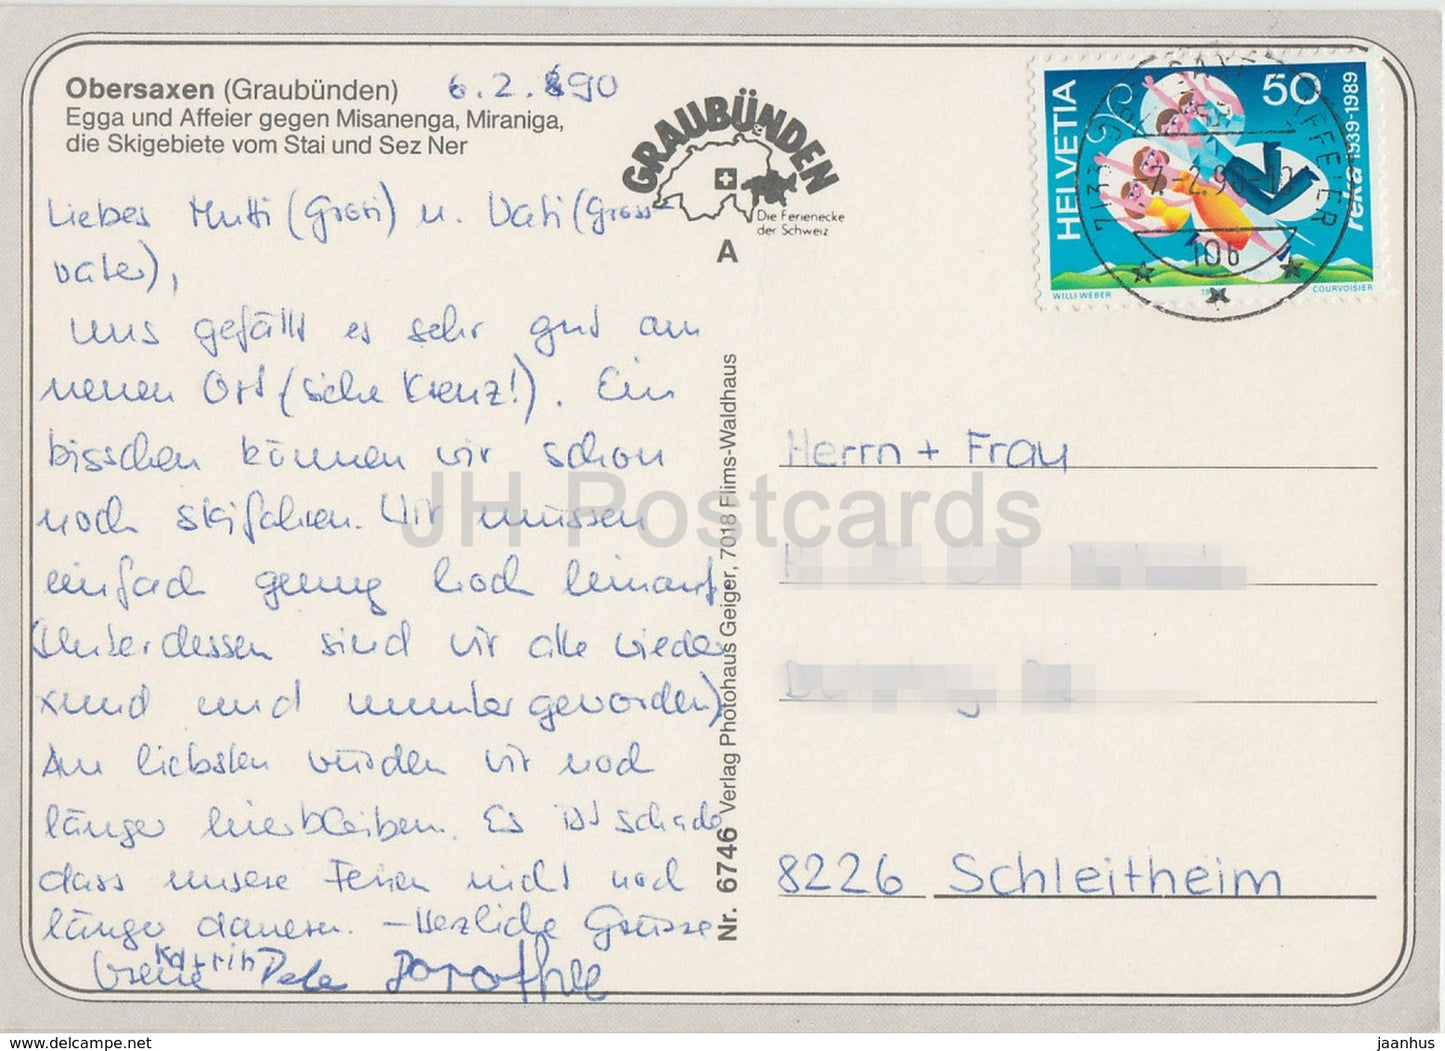 Obersaxen (Graubünden) 6.2.90
Egga und Affeier gegen Misanenga, Miraniga,
die Skigebiete vom Stai und Sez Ner
Liebes Mutti (Groti) u. Vati (Gross-
vater),
uns gefällt es sehr gut am
neuen Ort (siehe Kreuz!). Ein
bisschen können wir schon
noch skifahren. Wir müssen
einfach genug hoch hinauf
(Unterdessen sind wir alle wieder
xund und munter geworden)
Am liebsten würden wir noch
länger hierbleiben. Es ist schade
dass unsere Ferien nicht noch
länger dauern. – Herzliche Grüsse
Irene Katrin Dorothee
GRAUBÜNDEN
Die Ferienecke
der Schweiz
A
Nr. 6746 Verlag Photohaus Geiger, 7018 Flims-Waldhaus
HELVETIA
50
reka 1939-1989
WILLI WEBER
COURVOISIER
7133
AFFEIER
106
Herrn + Frau
8226 Schleitheim
JH Postcards
www.delcampe.net
jaanhus